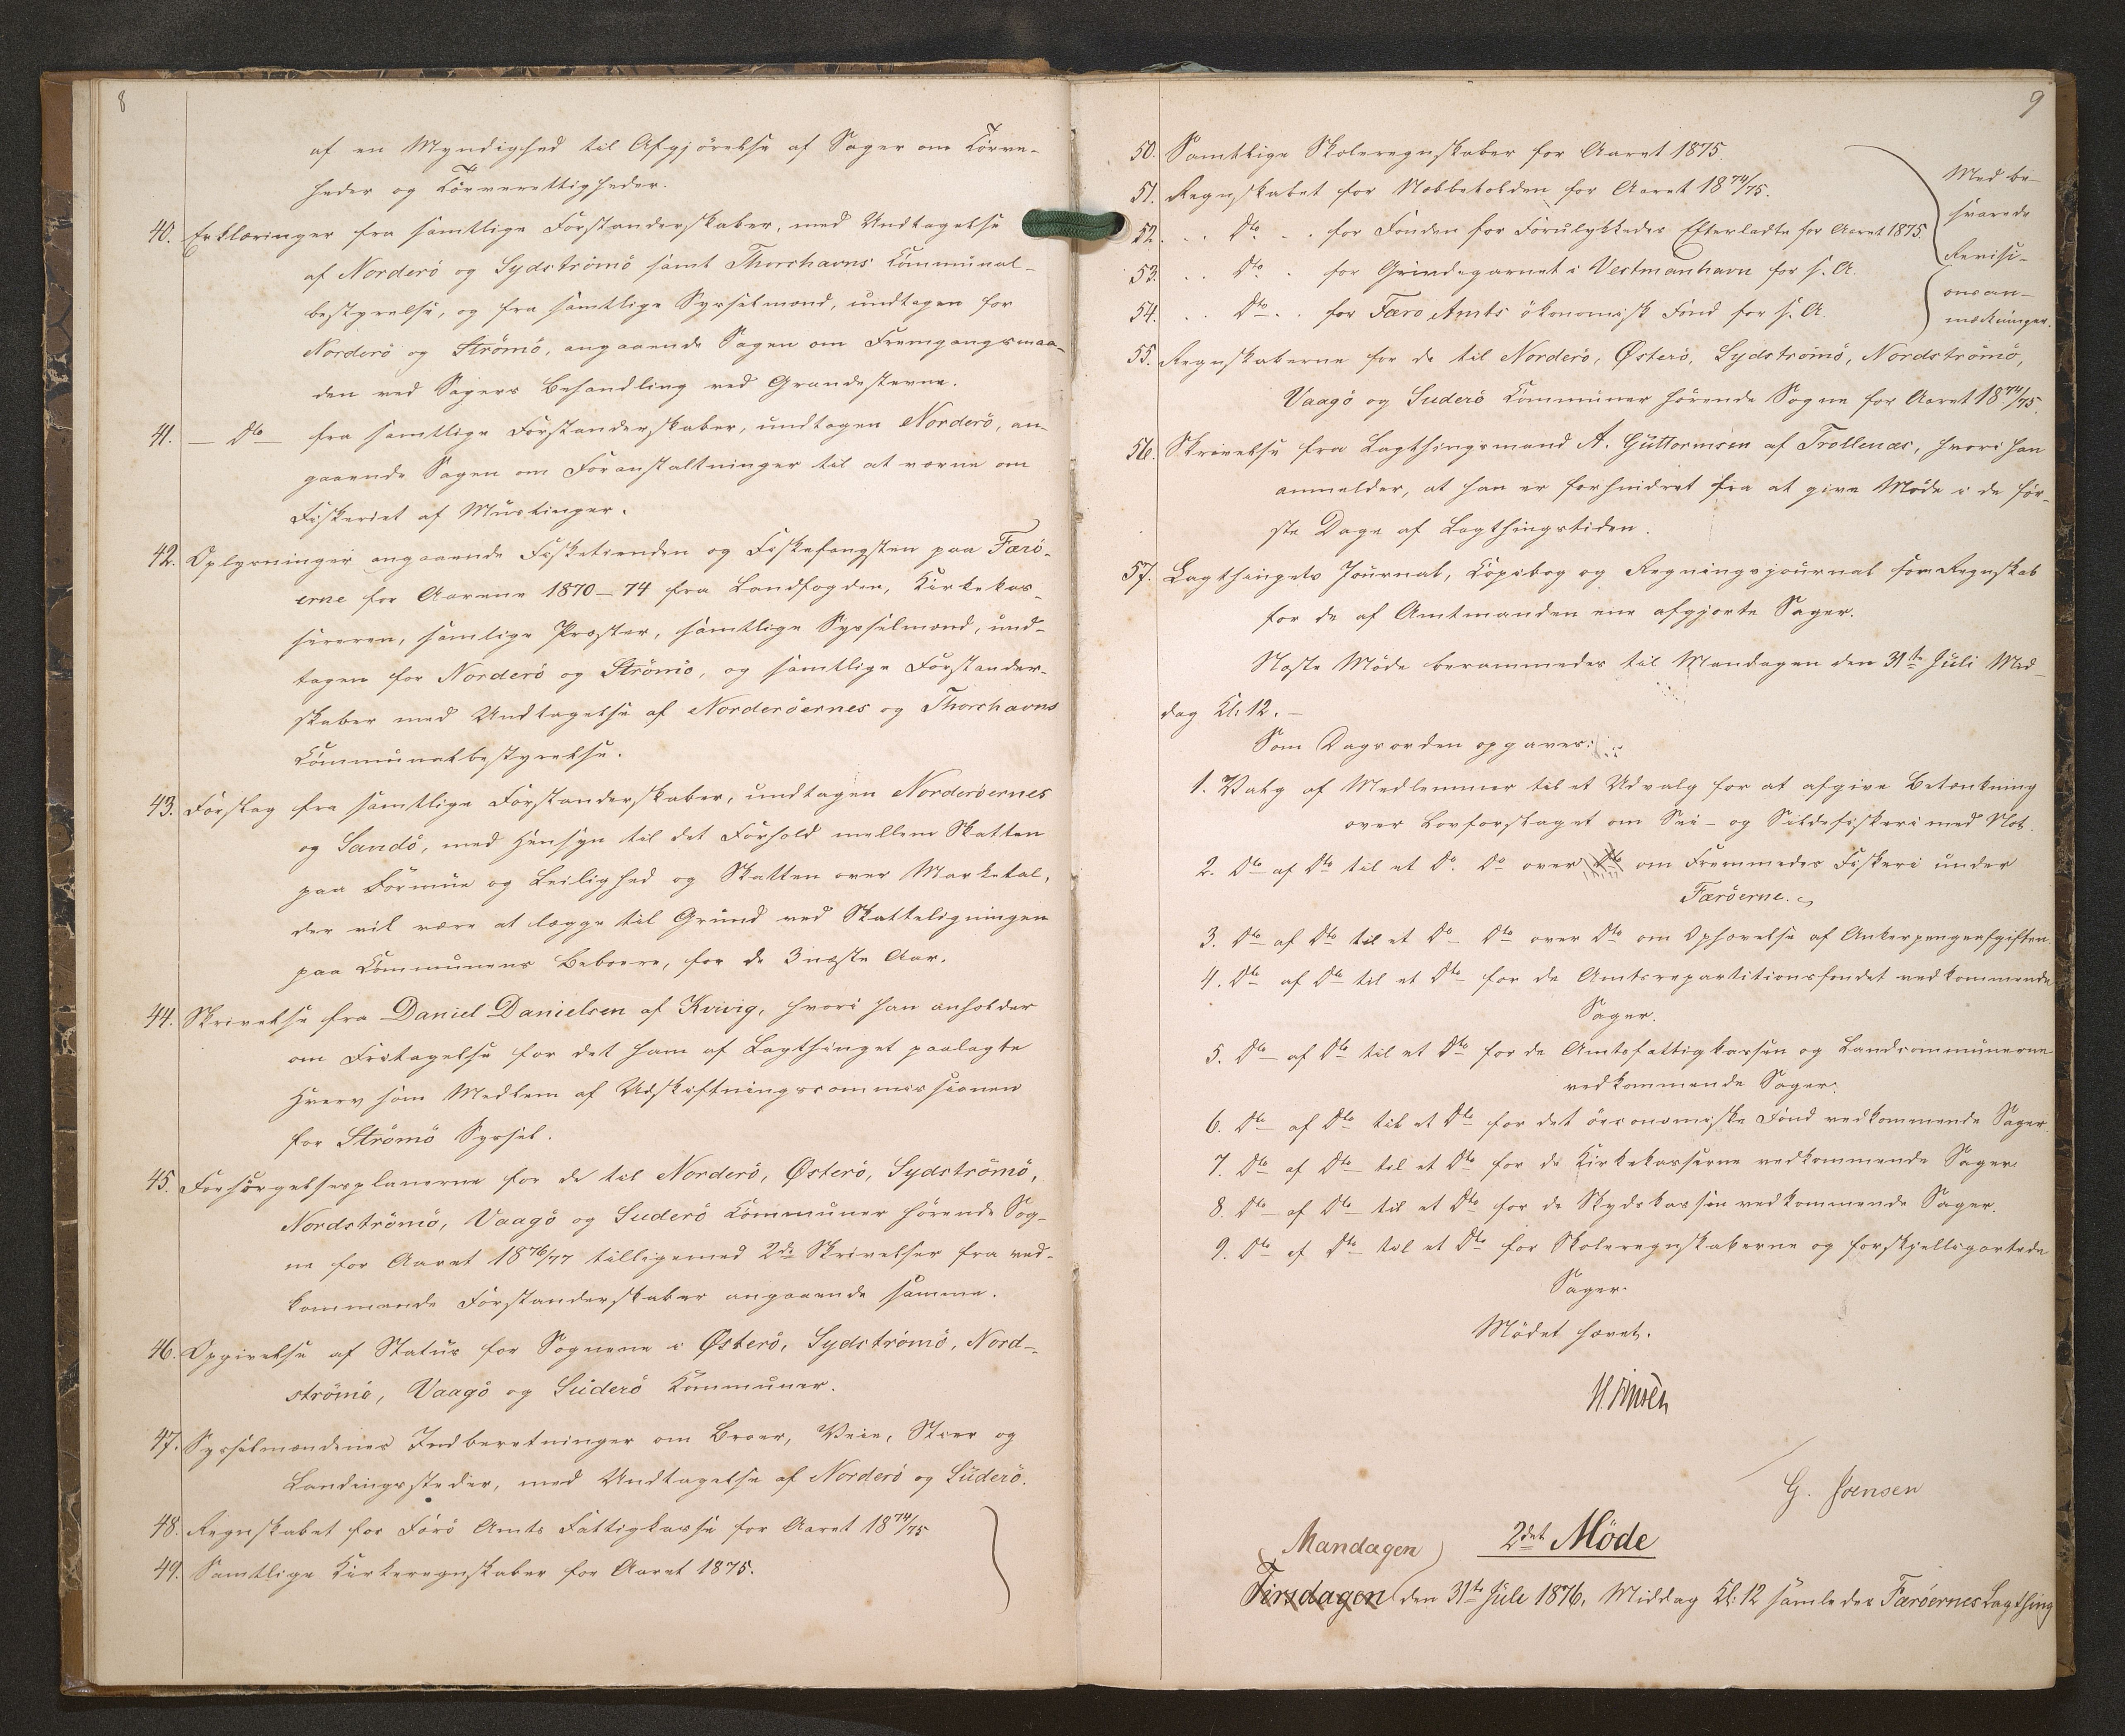 8
af en Myndighed til Afgjörelse af Sager om Törve-
heder og Törverettigheder.
40. Erklæringer fra samtlige Forstanderskaber, med Undtagelse
af Norderö og Sydströmö samt Thorshavns Communal-
bestyrelse, og fra samtlige Sysselmænd, undtagen for
Norderö og Strömö, angaaende Sagen om Fremgangsmaa-
den ved Sagers Behandling ved Grandestevne.
41. — Dto — fra samtlige Forstanderskaber, undtagen Norderö, an-
gaaende Sagen om Foranstaltninger til at værne om
Fiskeriet af Muslinger.
42. Oplysninger angaaende Fisketienden og Fiskefangsten paa Færö-
erne for Aarene 1870–74 fra Landfogden, Kirkekas-
sereren, samlige Præster, samtlige Sysselmænd, und-
tagen for Norderö og Strömö, og samtlige Forstander-
skaber med Undtagelse af Norderöernes og Thorshavns
Communalbestyrelse.
43. Forslag fra samtlige Forstanderskaber, undtagen Norderöernes
og Sandö, med Hensyn til det Forhold mellem Skatten
paa Formue og Leilighed og Skatten over Marketal,
der vil være at lægge til Grund ved Skatteligningen
paa Communens Beboere, for de 3 næste Aar.
44. Skrivelse fra Daniel Danielsen af Kvivig, hvori han anholder
om Fritagelse for det ham af Lagthinget paalagte
Hverv som Medlem af Udskiftningscommissionen
for Strömö Syssel.
45. Forsörgelsesplanerne for de til Norderö, Østerö, Sydströmö,
Nordströmö, Vaagö og Suderö Communer hörende Sog-
ne for Aaret 1876/77 tilligemed 2de Skrivelser fra ved-
kommende Forstanderskaber angaaende samme.
46. Opgivelse af Status for Sognene i Østerö, Sydströmö, Nord-
strömö, Vaagö og Suderö Communer.
47. Sysselmændenes Indberetninger om Broer, Veie, Stier og
Landingssteder, med Undtagelse af Norderö og Suderö.
48. Regnskabet for Færö Amts Fattigkasse for Aaret 1874/75
49. Samtlige Kirkeregnskaber for Aaret 1875.
9
50. Samtlige Skoleregnskaber for Aaret 1875.
51. Regnskabet for Næbbetolden for Aaret 1874/75.
52. . . Dto . . for Fonden for Forulykkedes Efterladte for Aaret 1875.
53. . . Dto . for Grindegarnet i Vestmanhavn for s. A.
54. . . Dto . . for Færo Amts ökonomisk Fond for s. A.
Med be-
svarede
Revisi-
onsan-
mærkninger.
55. Regnskaberne for de til Norderö, Østerö, Sydströmö, Nordströmö,
Vaagö og Suderö Communer hörende Sogne for Aaret 1874/75.
56. Skrivelse fra Lagthingsmand A. Guttormsen af Trollenæs, hvori han
anmelder, at han er forhindret fra at give Möde i de för-
ste Dage af Lagthingstiden.
57. Lagthingets Journal, Copibog og Regningsjournal som Regnskab
for de af Amtmanden ene afgjorte Sager.
Næste Möde berammedes til Mandagen den 31te Juli Mid-
dag Kl. 12. —
Som Dagsorden opgaves:
1. Valg af Medlemmer til et Udvalg for at afgive Betænkning
over Lovforslaget om Sei- og Sildefiskeri med Not.
2. Dto af Dto til et Do. Do over Dto om Fremmedes Fiskeri under
Færöerne.
3. Dto af Dto til et Do Dto over Dto om Ophævelse af Ankerpengeafgiften.
4. Dto af Dto til et Dto for de Amtsrepartitionsfondet vedkommende
Sager.
5. Dto af Dto til et Dto for de Amtsfattigkassen og Landcommunerne
vedkommende Sager.
6. Dto af Dto til et Dto for det öconomiske Fond vedkommende Sager.
7. Dto af Dto til et Dto for de Kirkekasserne vedkommende Sager.
8. Dto af Dto til et Dto for de Skydskassen vedkommende Sager.
9. Dto af Dto til et Dto for Skoleregnskaberne og forskjelligartede
Sager.
Mödet hævet.
H. Finsen
G. Joensen
2det Möde
Mandagen
Tirsdagen den 31te Juli 1876, Middag Kl. 12 samledes Færöernes Lagthing